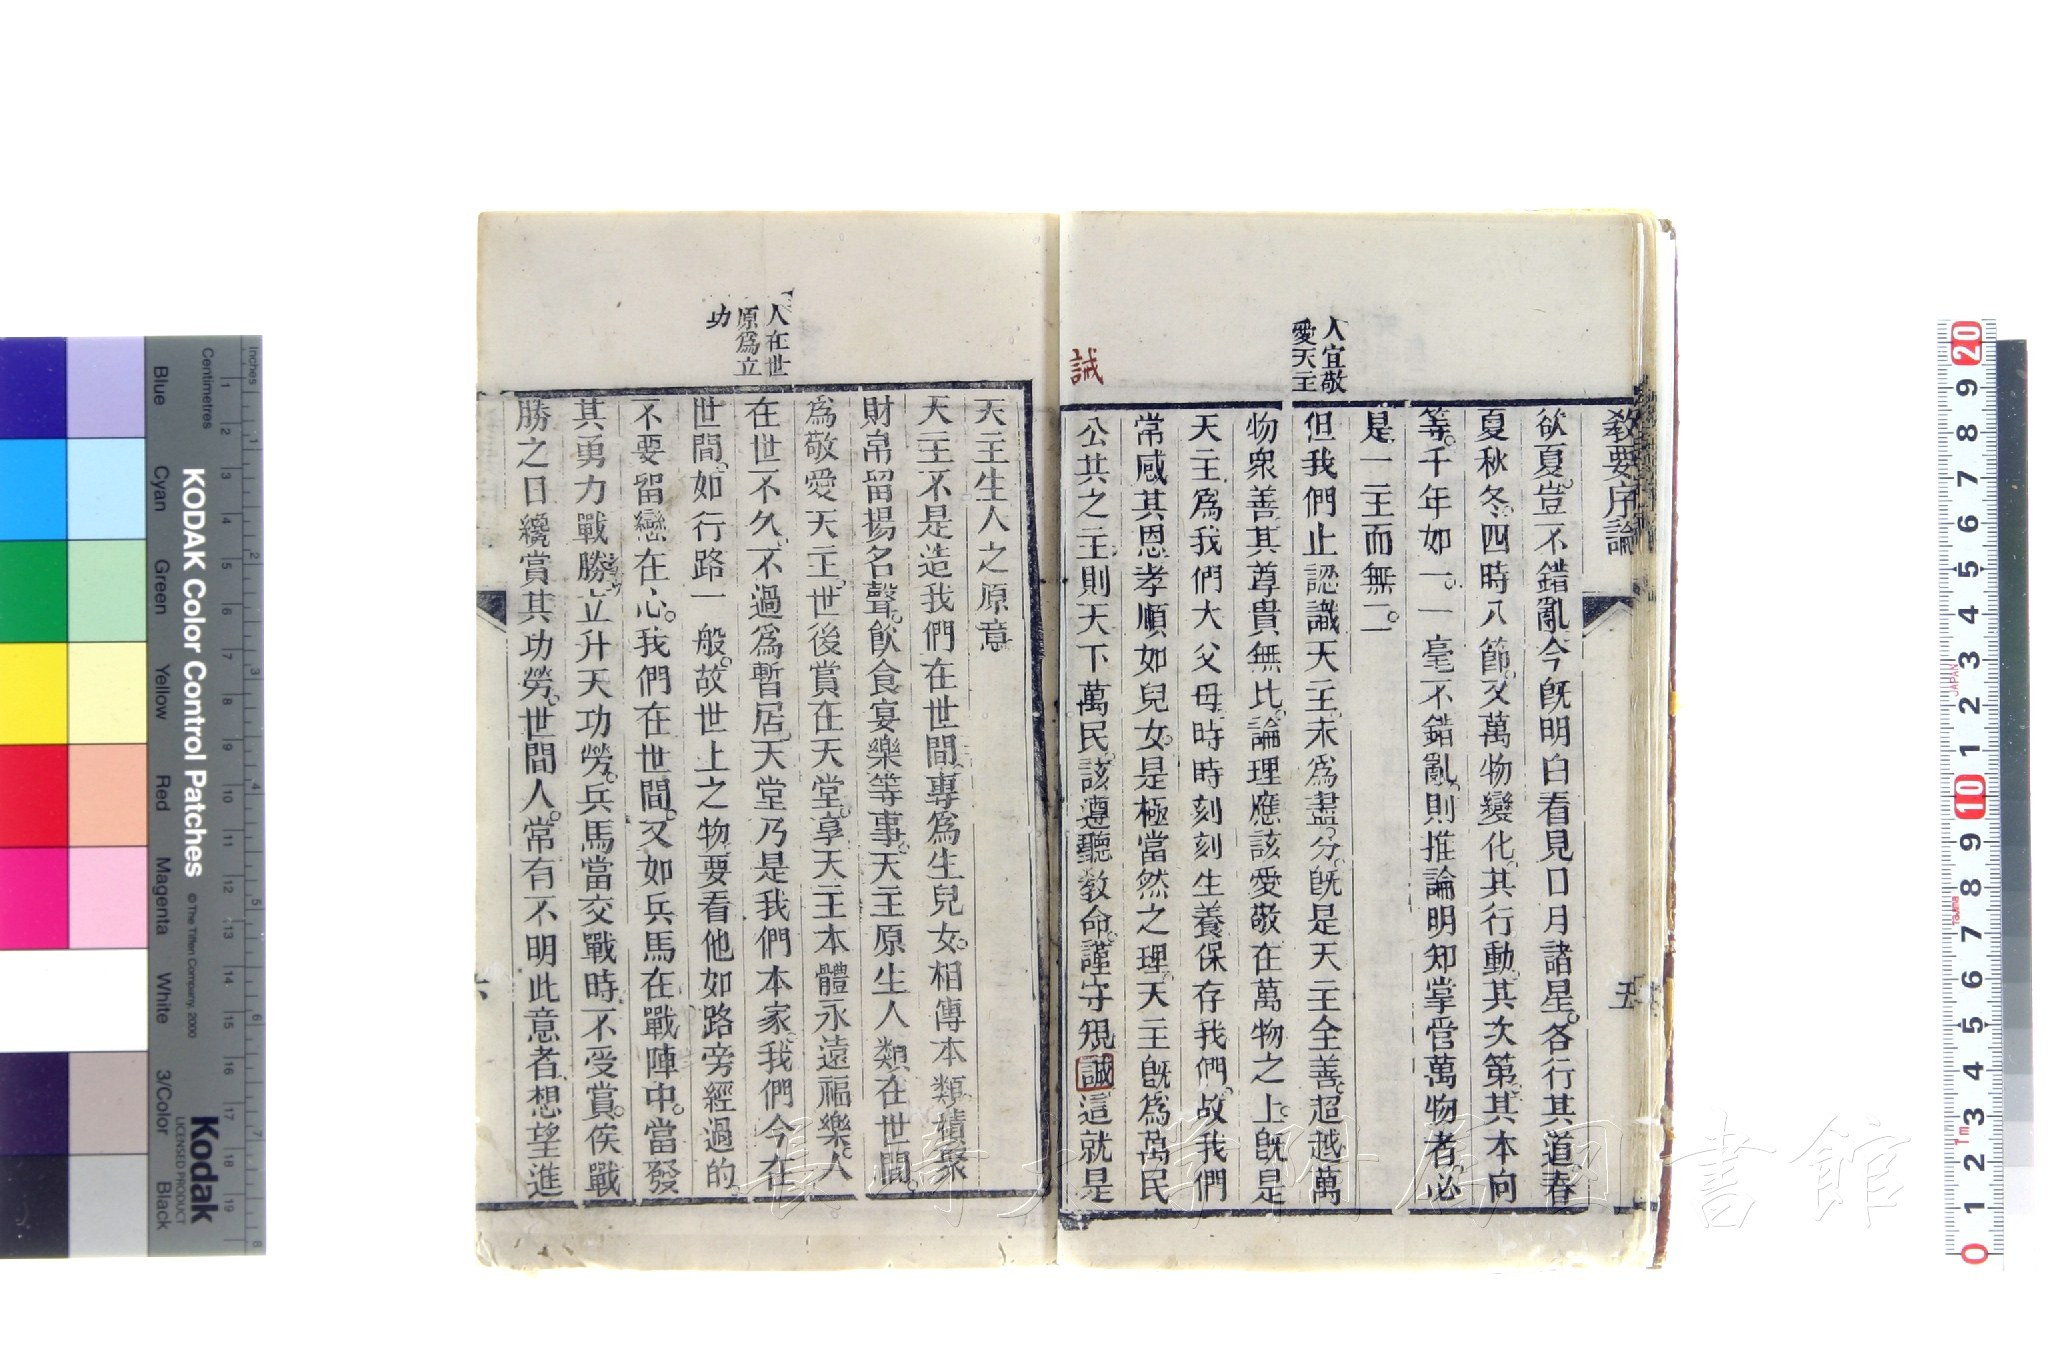 教要序論
五
欲夏。豈不錯亂。今旣明白看見日月諸星。各行其道。春
夏秋冬。四時八節。又萬物變化。其行動。其次第。其本向
等。千年如一。一毫不錯亂。則推論明知掌管萬物者。必
是一主而無二。
人宜敬
愛天主
但我們止認識天主。未爲盡分。旣是天主全善。超越萬
物衆善。其尊貴無比。論理應該愛敬在萬物之上。旣是
天主爲我們大父母。時時刻刻生養保存我們。故我們
常感其恩。孝順如兒女。是極當然之理。天主旣爲萬民
公共之主。則天下萬民。該遵聽教命。謹守規誠這就是
誡
天主生人之原意
天主不是造我們在世間。專爲生兒女。相傳本類。積聚
財帛。留揚名聲。飮食宴樂等事。天主原生人類。在世間。
爲敬愛天主。世後賞在天堂。享天主本體永遠福樂。人
人在世
原爲立
功
在世不久。不過爲暫居。天堂乃是我們本家。我們今在
世間。如行路一般。故世上之物。要看他如路旁經過的。
不要留戀在心。我們在世間。又如兵馬在戰陣中。當發
其勇力戰勝。立升天功勞。兵馬當交戰時。不受賞。俟戰
勝之日。纔賞其功勞。世間人。常有不明此意者。想望進
六
長崎大学附属図書館
KODAK Color Control Patches
© The Tiffen Company, 2000
Kodak
LICENSED PRODUCT
Inches
Centimetres
Blue
Cyan
Green
Yellow
Red
Magenta
White
3/Color
Black
JAPAN
Tajima